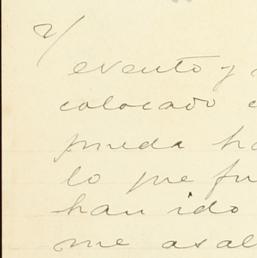 2/
evento y
colocado
pueda ha
lo que fu
han ido
me asal